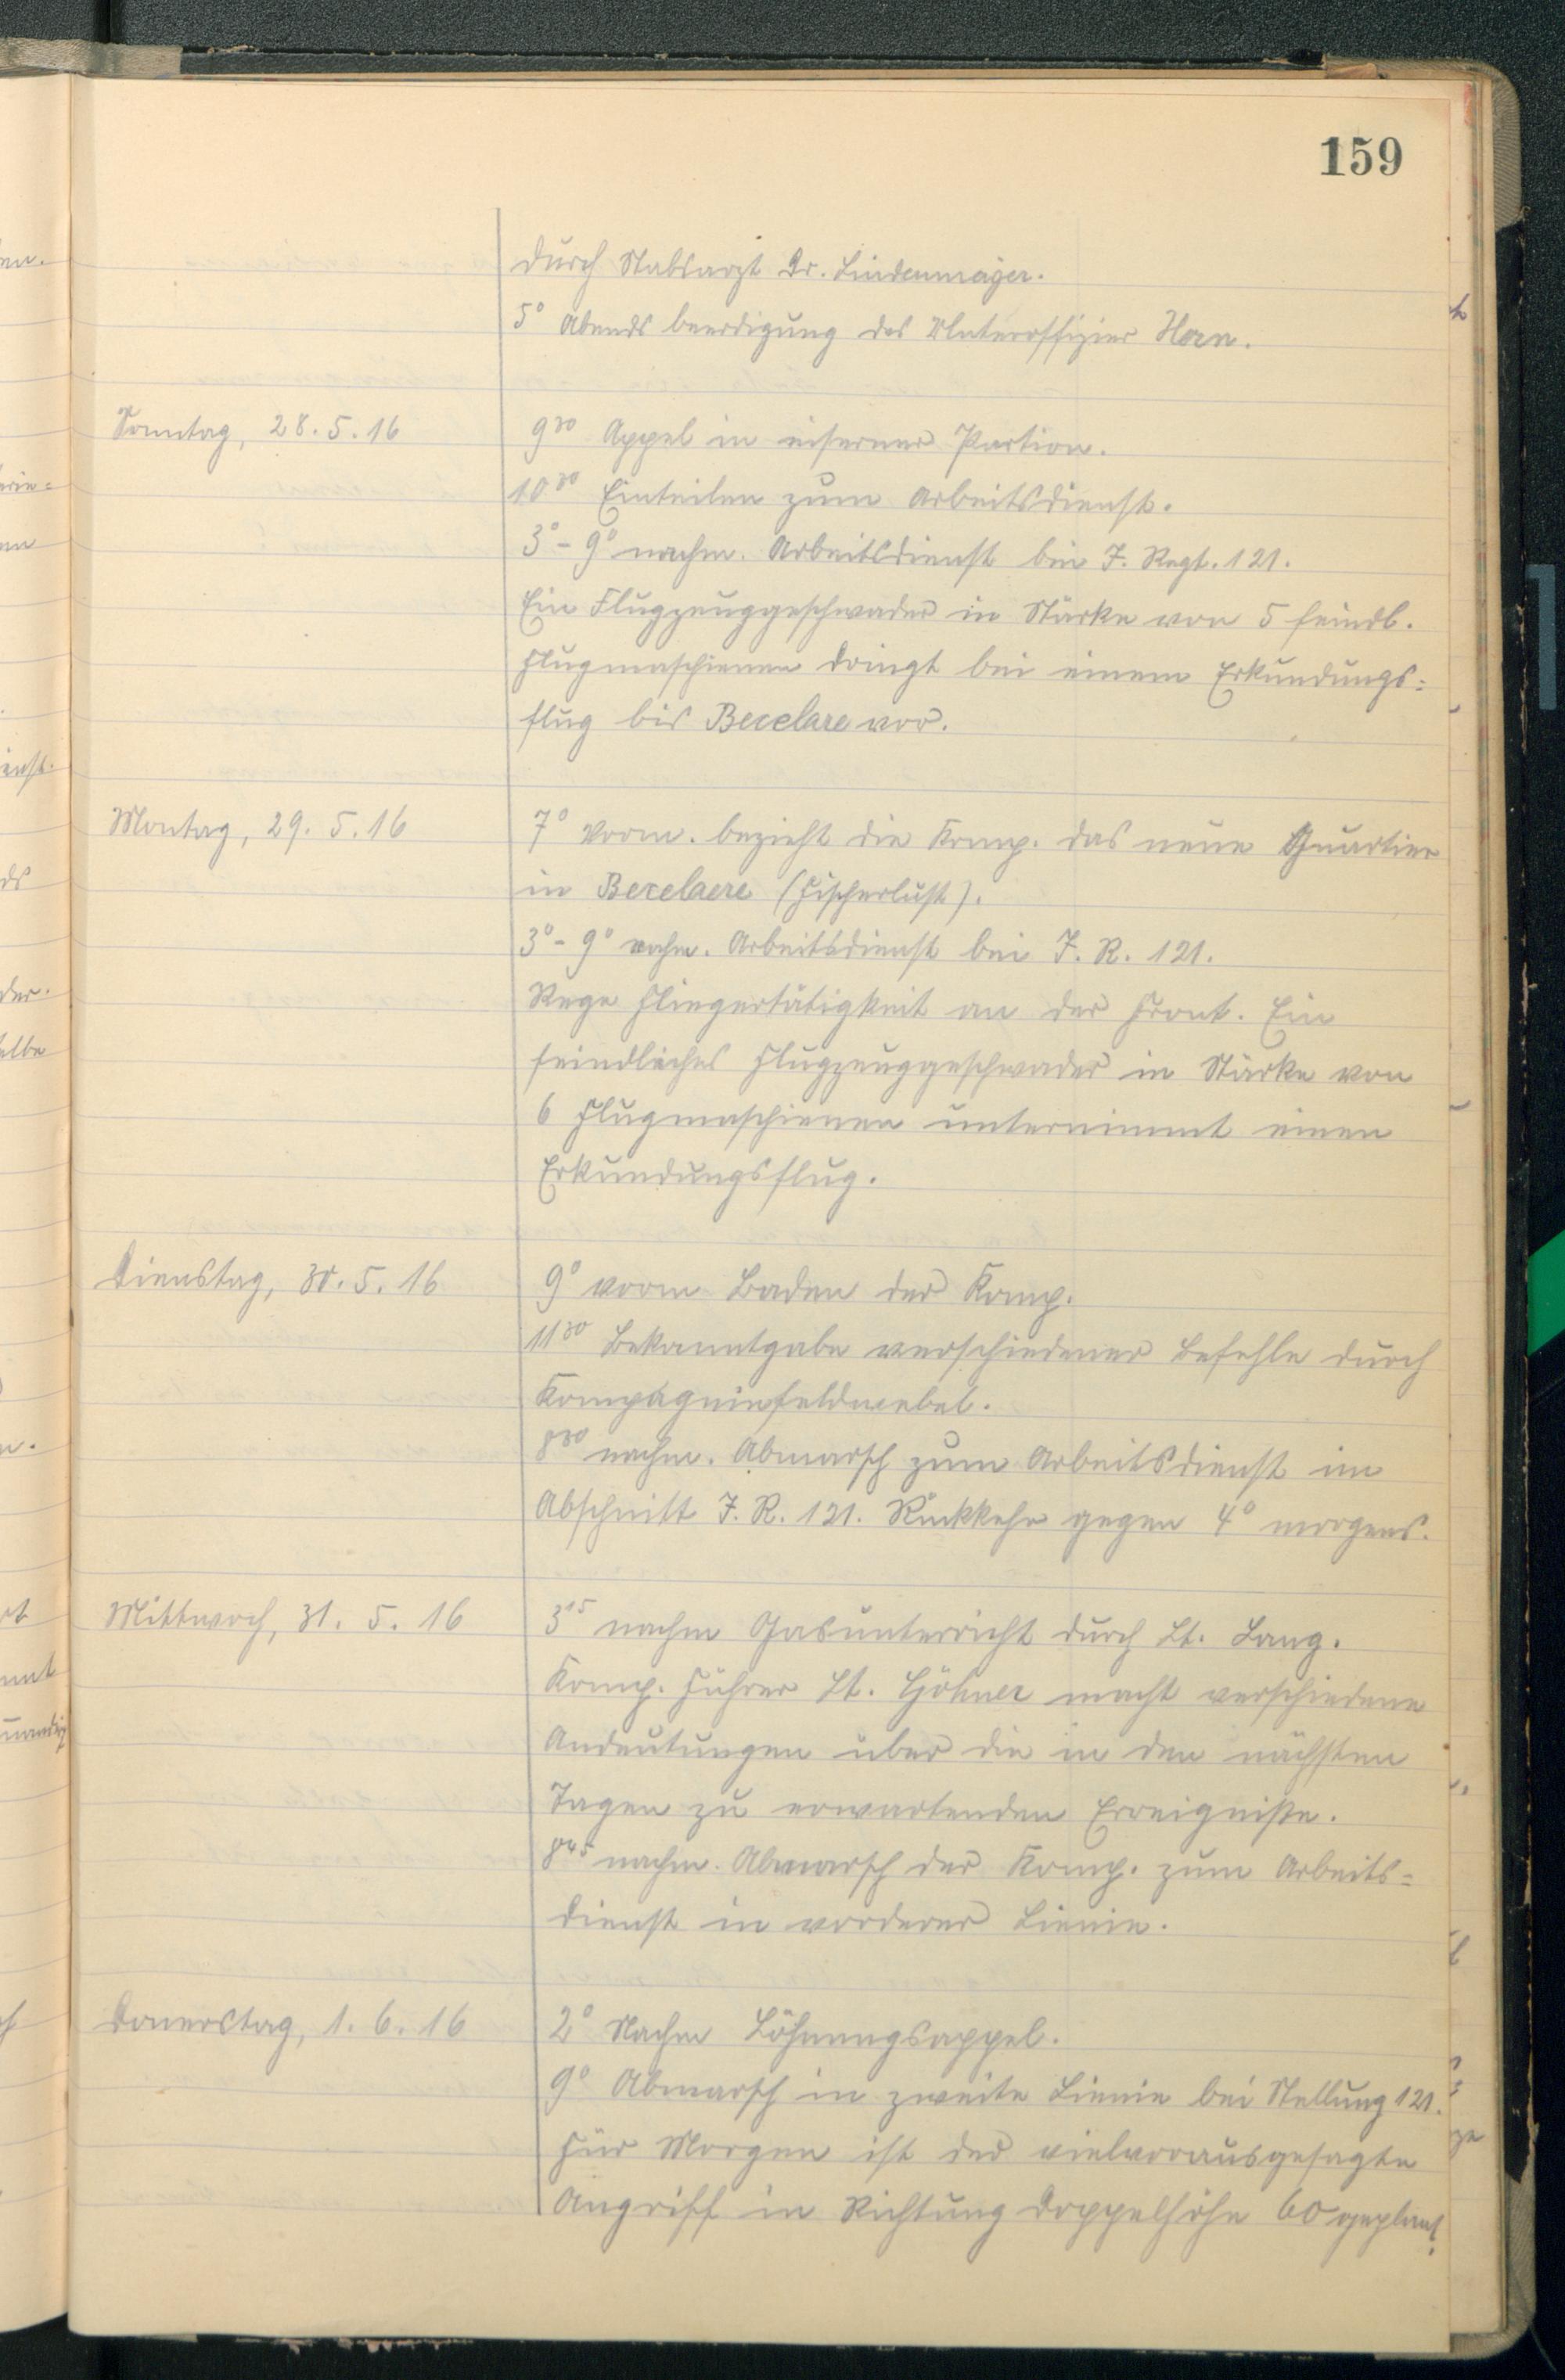 159
durch Stabsarzt Dr. Lindenmajer.
5° Abends beerdigung des Unteroffizier Horn.
Sonntag, 28.5.16
9³⁰ Appel in eiserner Portion.
10³⁰ Einteilen zum Arbeitsdienst.
3°-9° nachm. Arbeitsdienst bei J. Regt. 121.
Ein Flugzeuggeschwader in Stärke von 5 feindl.
Flugmaschienen dringt bei einem Erkundungs=
flug bis Becelare vor.
Montag, 29.5.16
7° vorm. bezieht die Komp. das neue Quartier
in Becelaere (Fischerlust).
3°-9° nahm. Arbeitsdienst bei J. R. 121.
Rege Fliegertätigkeit an der Front. Ein
feindliches Flugzeuggeschwader in Stärke von
6 Flugmaschienen unternimmt einen
Erkundungsflug.
Dienstag, 30.5.16
9° vorm Baden der Komp.
11³⁰ Bekanntgabe verschiedener Befehle durch
Kompagniefeldwebel.
8³⁰ nachm. Abmarsch zum Arbeitsdienst im
Abschnitt J. R. 121. Rückkehr gegen 4° morgens.
Mittwoch, 31.5.16
3¹⁵ nachm Gasunterricht durch Lt. Lang.
Komp. Führer Lt. Göhner macht verschiedene
Andeutungen über die in den nächsten
Tagen zu erwartenden Ereignisse.
8⁴⁵ nachm. Abmarsch der Komp. zum Arbeits=
dienst in vorderer Lienie.
Donerstag, 1.6.16
2° Nachm Löhnungsappel.
9° Abmarsch in zweite Lienie bei Stellung 121.
Für Morgen ist der vielvorausgesagte
Angriff in Richtung Doppelhöhe 60 geplant.